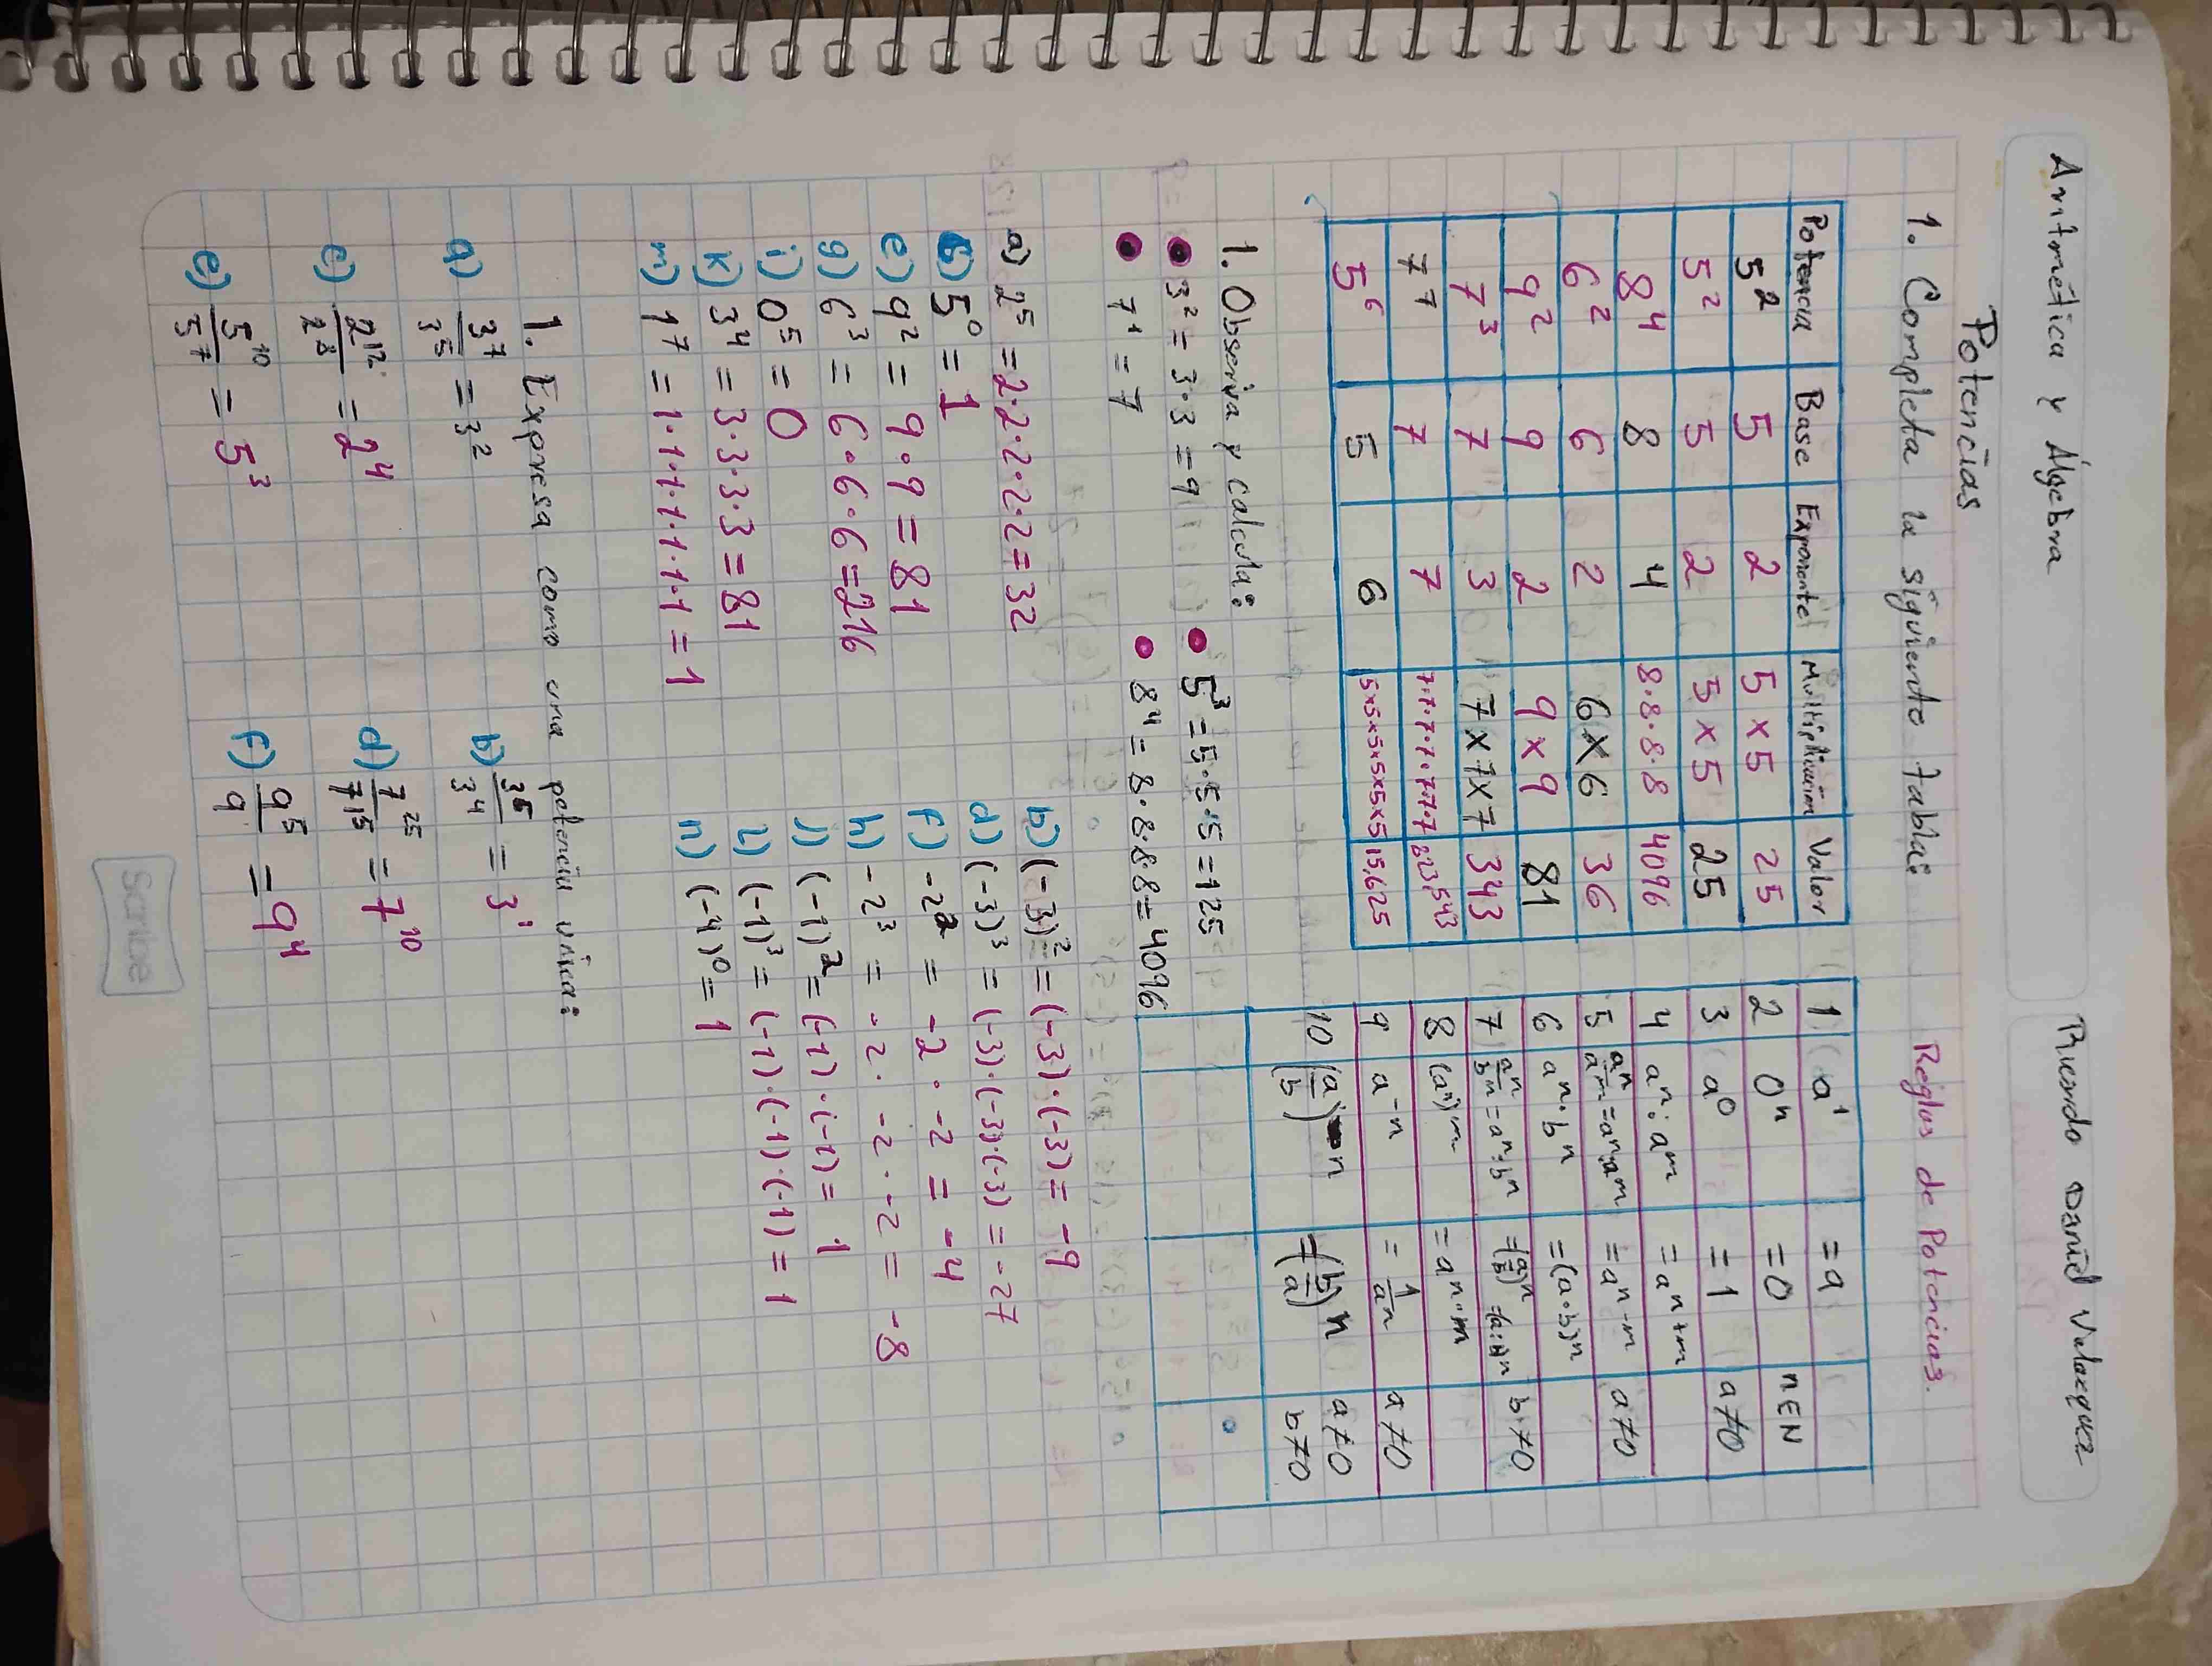 Aritmética y Álgebra
Ricardo Daniel Velazquez
Potencias
1. Completa la siguiente tabla:
Potencia Base Exponente Multiplicación Valor
5² 5 2 5 x 5 25
5² 5 2 5 x 5 25
8⁴ 8 4 8·8·8·8 4096
6² 6 2 6 x 6 36
9² 9 2 9 x 9 81
7³ 7 3 7 x 7 x 7 343
7⁷ 7 7 7·7·7·7·7·7·7 823,543
5⁶ 5 6 5x5x5x5x5x5 15,625
Reglas de Potencias.
1 a¹ = a
2 0ⁿ = 0 n∈N
3 a⁰ = 1 a≠0
4 aⁿ · aᵐ = aⁿ⁺ᵐ
5 aⁿ/aᵐ = aⁿ:aᵐ = aⁿ⁻ᵐ a≠0
6 aⁿ · bⁿ = (a·b)ⁿ
7 aⁿ/bⁿ = aⁿ:bⁿ = (a/b)ⁿ b≠0
8 (aⁿ)ᵐ = aⁿ·ᵐ
9 a⁻ⁿ = 1/aⁿ a≠0
10 (a/b)⁻ⁿ = (b/a)ⁿ a≠0 b≠0
1. Observa y calcula:
3² = 3·3 = 9 5³ = 5·5·5 = 125
7¹ = 7 8⁴ = 8·8·8·8 = 4096
a) 2⁵ = 2·2·2·2·2 = 32 b) (-3)² = (-3)·(-3) = -9
5⁰ = 1 d) (-3)³ = (-3)·(-3)·(-3) = -27
e) 9² = 9·9 = 81 f) -2² = -2 · -2 = -4
g) 6³ = 6·6·6 = 216 h) -2³ = -2 · -2 · -2 = -8
i) 0⁵ = 0 j) (-1)² = (-1)·(-1) = 1
k) 3⁴ = 3·3·3·3 = 81 L) (-1)³ = (-1)·(-1)·(-1) = 1
m) 1⁷ = 1·1·1·1·1·1·1 = 1 n) (-4)⁰ = 1
1. Expresa como una potencia única:
a) 3⁷/3⁵ = 3² b) 3⁵/3⁴ = 3¹
c) 2¹²/2⁸ = 2⁴ d) 7²⁵/7¹⁵ = 7¹⁰
e) 5¹⁰/5⁷ = 5³ f) 9⁵/9 = 9⁴
Scribe